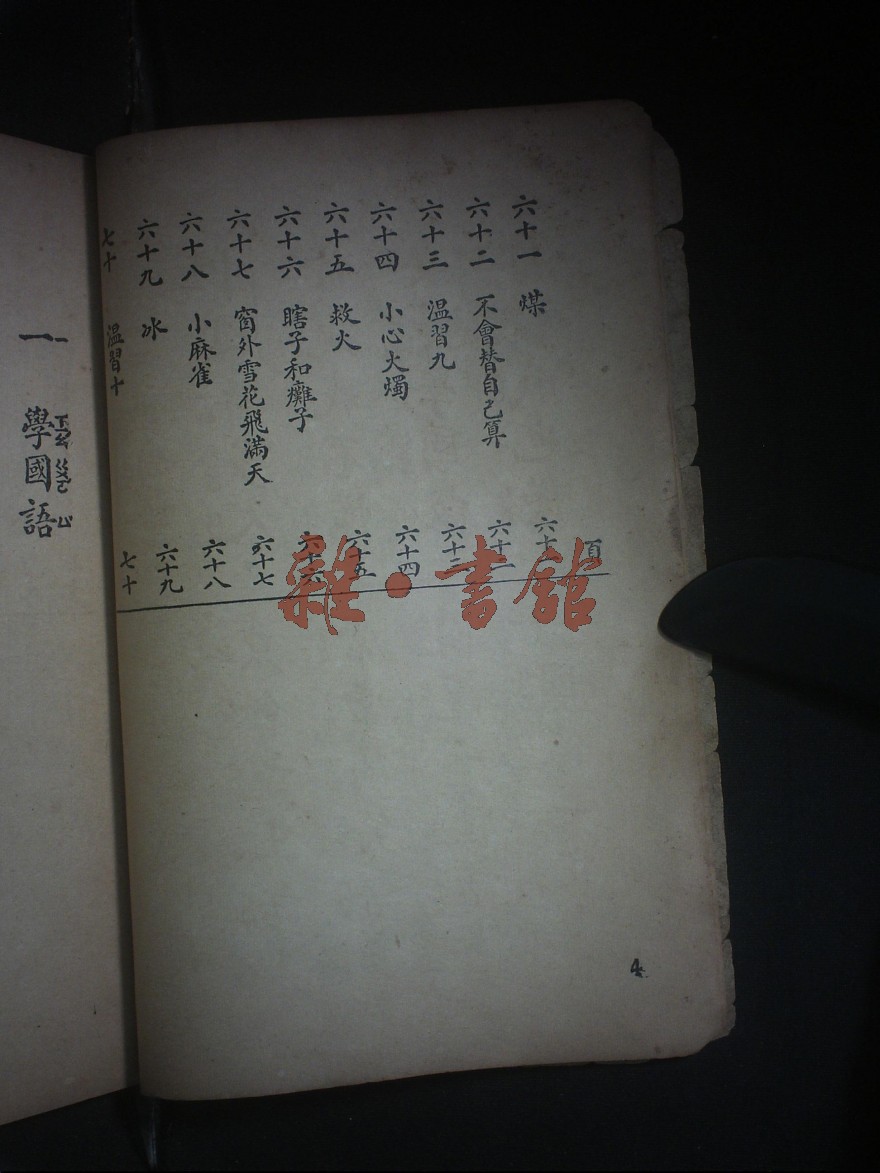 頁
六十一 煤 六十一
六十二 不會替自己算 六十二
六十三 溫習九 六十三
六十四 小心火燭 六十四
六十五 救火 六十五
六十六 瞎子和癱子 六十六
六十七 窗外雪花飛滿天 六十七
六十八 小麻雀 六十八
六十九 冰 六十九
七十 溫習十 七十
4
雜·書館
一 學國語
ㄧ ㄒㄩㄝ ㄍㄨㄛ ㄩ